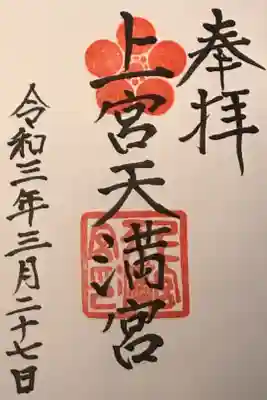 奉拝
上宮天満宮
令和三年三月二十七日